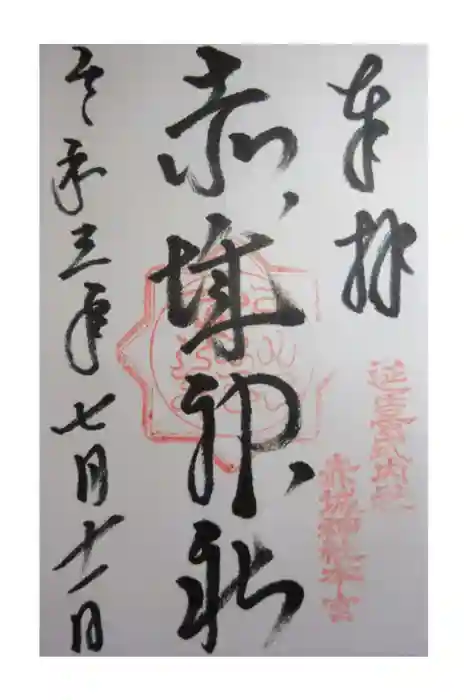 奉拝
延喜式内社
赤城神社本宮
赤城神社
令和三年七月十一日